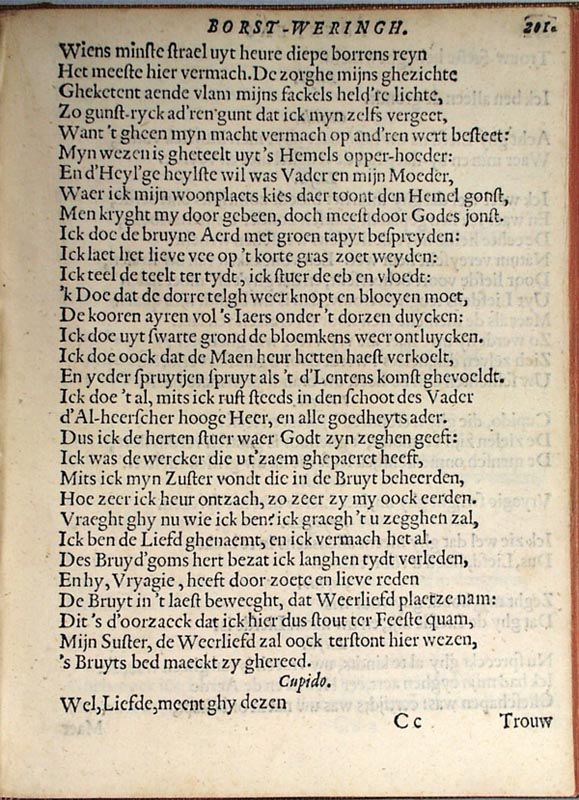 BORST-WERINGH. 201.
Wiens minste strael uyt heure diepe borrens reyn
Het meeste hier vermach. De zorghe mijns ghezichte
Gheketent aende vlam mijns fackels held're lichte,
Zo gunst-ryck ad'ren gunt dat ick myn zelfs vergeet,
Want 't gheen myn macht vermach op and'ren wert besteet:
Myn wezen is gheteelt uyt 's Hemels opper-hoeder:
En d'Heyl'ge heylste wil was Vader en mijn Moeder,
Waer ick mijn woonplaets kies daer toont den Hemel gonst,
Men kryght my door gebeen, doch meest door Godes jonst.
Ick doe de bruyne Aerd met groen tapyt bespreyden:
Ick laet het lieve vee op 't korte gras zoet weyden:
Ick teel de teelt ter tydt, ick stuer de eb en vloedt:
'k Doe dat de dorre telgh weer knopt en bloeyen moet,
De kooren ayren vol 's Iaers onder 't dorzen duycken:
Ick doe uyt swarte grond de bloemkens weer ontluycken.
Ick doe oock dat de Maen heur hetten haest verkoelt,
En yeder spruytjen spruyt als 't d'Lentens komst ghevoeldt.
Ick doe 't al, mits ick rust steeds in den schoot des Vader
d'Al-heerscher hooge Heer, en alle goedheyts ader.
Dus ick de herten stuer waer Godt zyn zeghen geeft:
Ick was de wercker die u t'zaem ghepaeret heeft,
Mits ick myn Zuster vondt die in de Bruyt beheerden,
Hoe zeer ick heur ontzach, zo zeer zy my oock eerden.
Vraeght ghy nu wie ick ben? ick graegh 't u zegghen zal,
Ick ben de Liefd ghenaemt, en ick vermach het al.
Des Bruyd'goms hert bezat ick langhen tydt verleden,
En hy, Vryagie, heeft door zoete en lieve reden
De Bruyt in 't laest beweeght, dat Weerliefd plaetze nam:
Dit 's d'oorzaeck dat ick hier dus stout ter Feeste quam,
Mijn Suster, de Weerliefd zal oock terstont hier wezen,
's Bruyts bed maeckt zy ghereed.
Cupido.
Wel, Liefde, meent ghy dezen
Cc Trouw